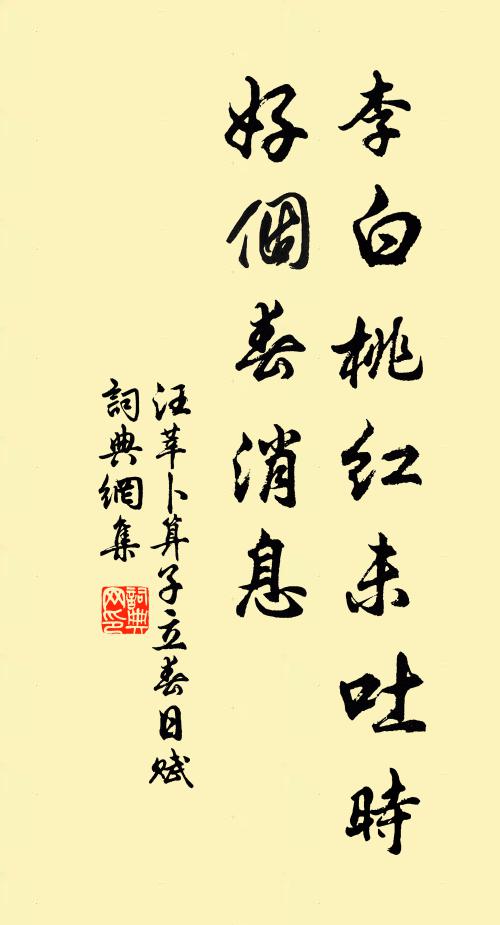 李白桃红未吐時
好個春消息
汪莘卜算子立春日赋
詞典網集
詞典网印